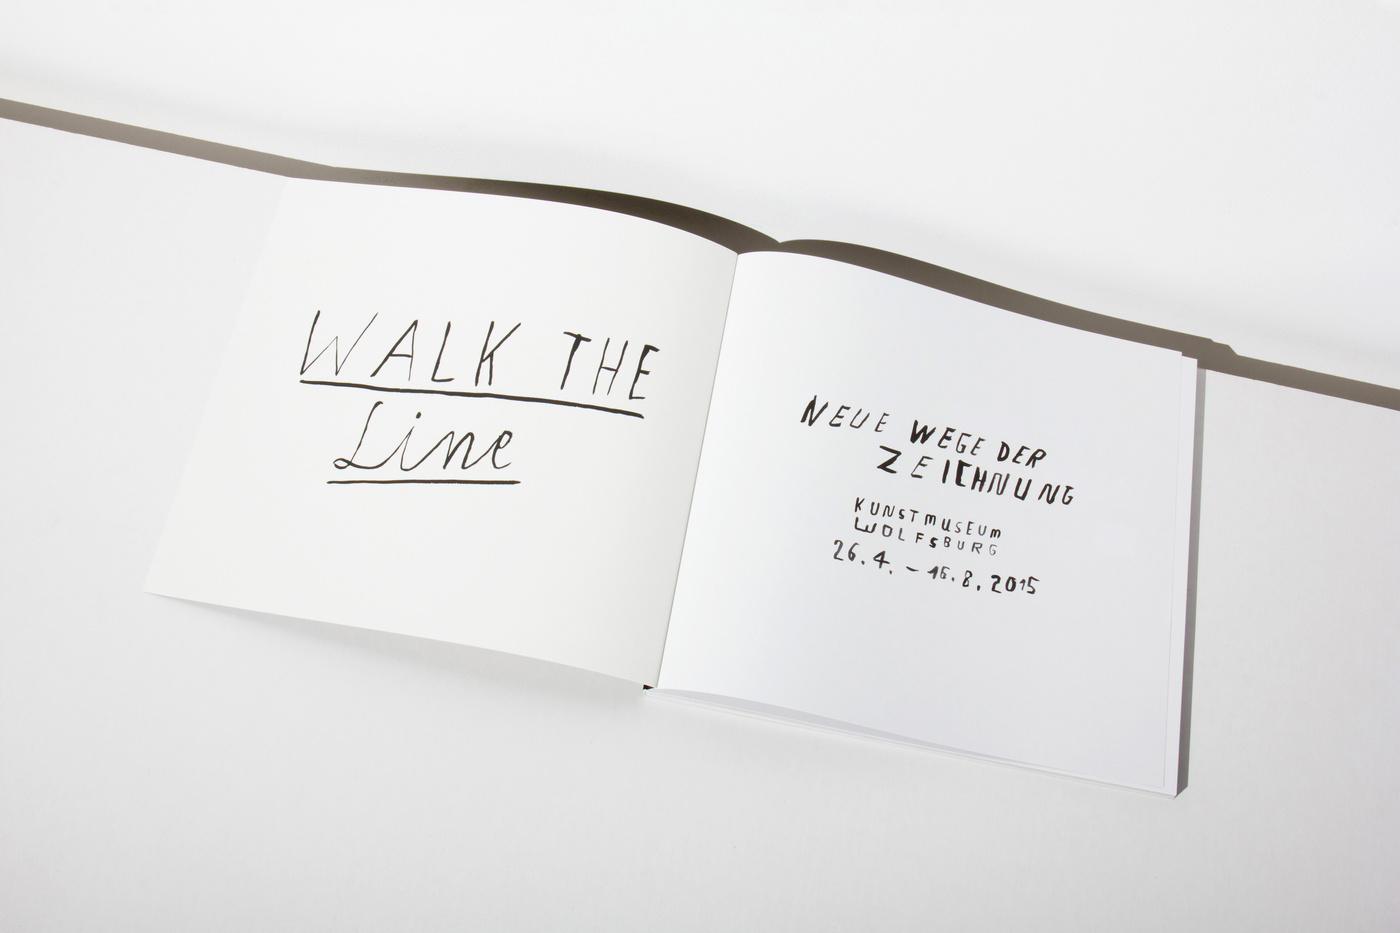 WALK THE
Line
NEUE WEGE DER
ZEICHNUNG
KUNSTMUSEUM
WOLFSBURG
26.4. – 16.8.2015